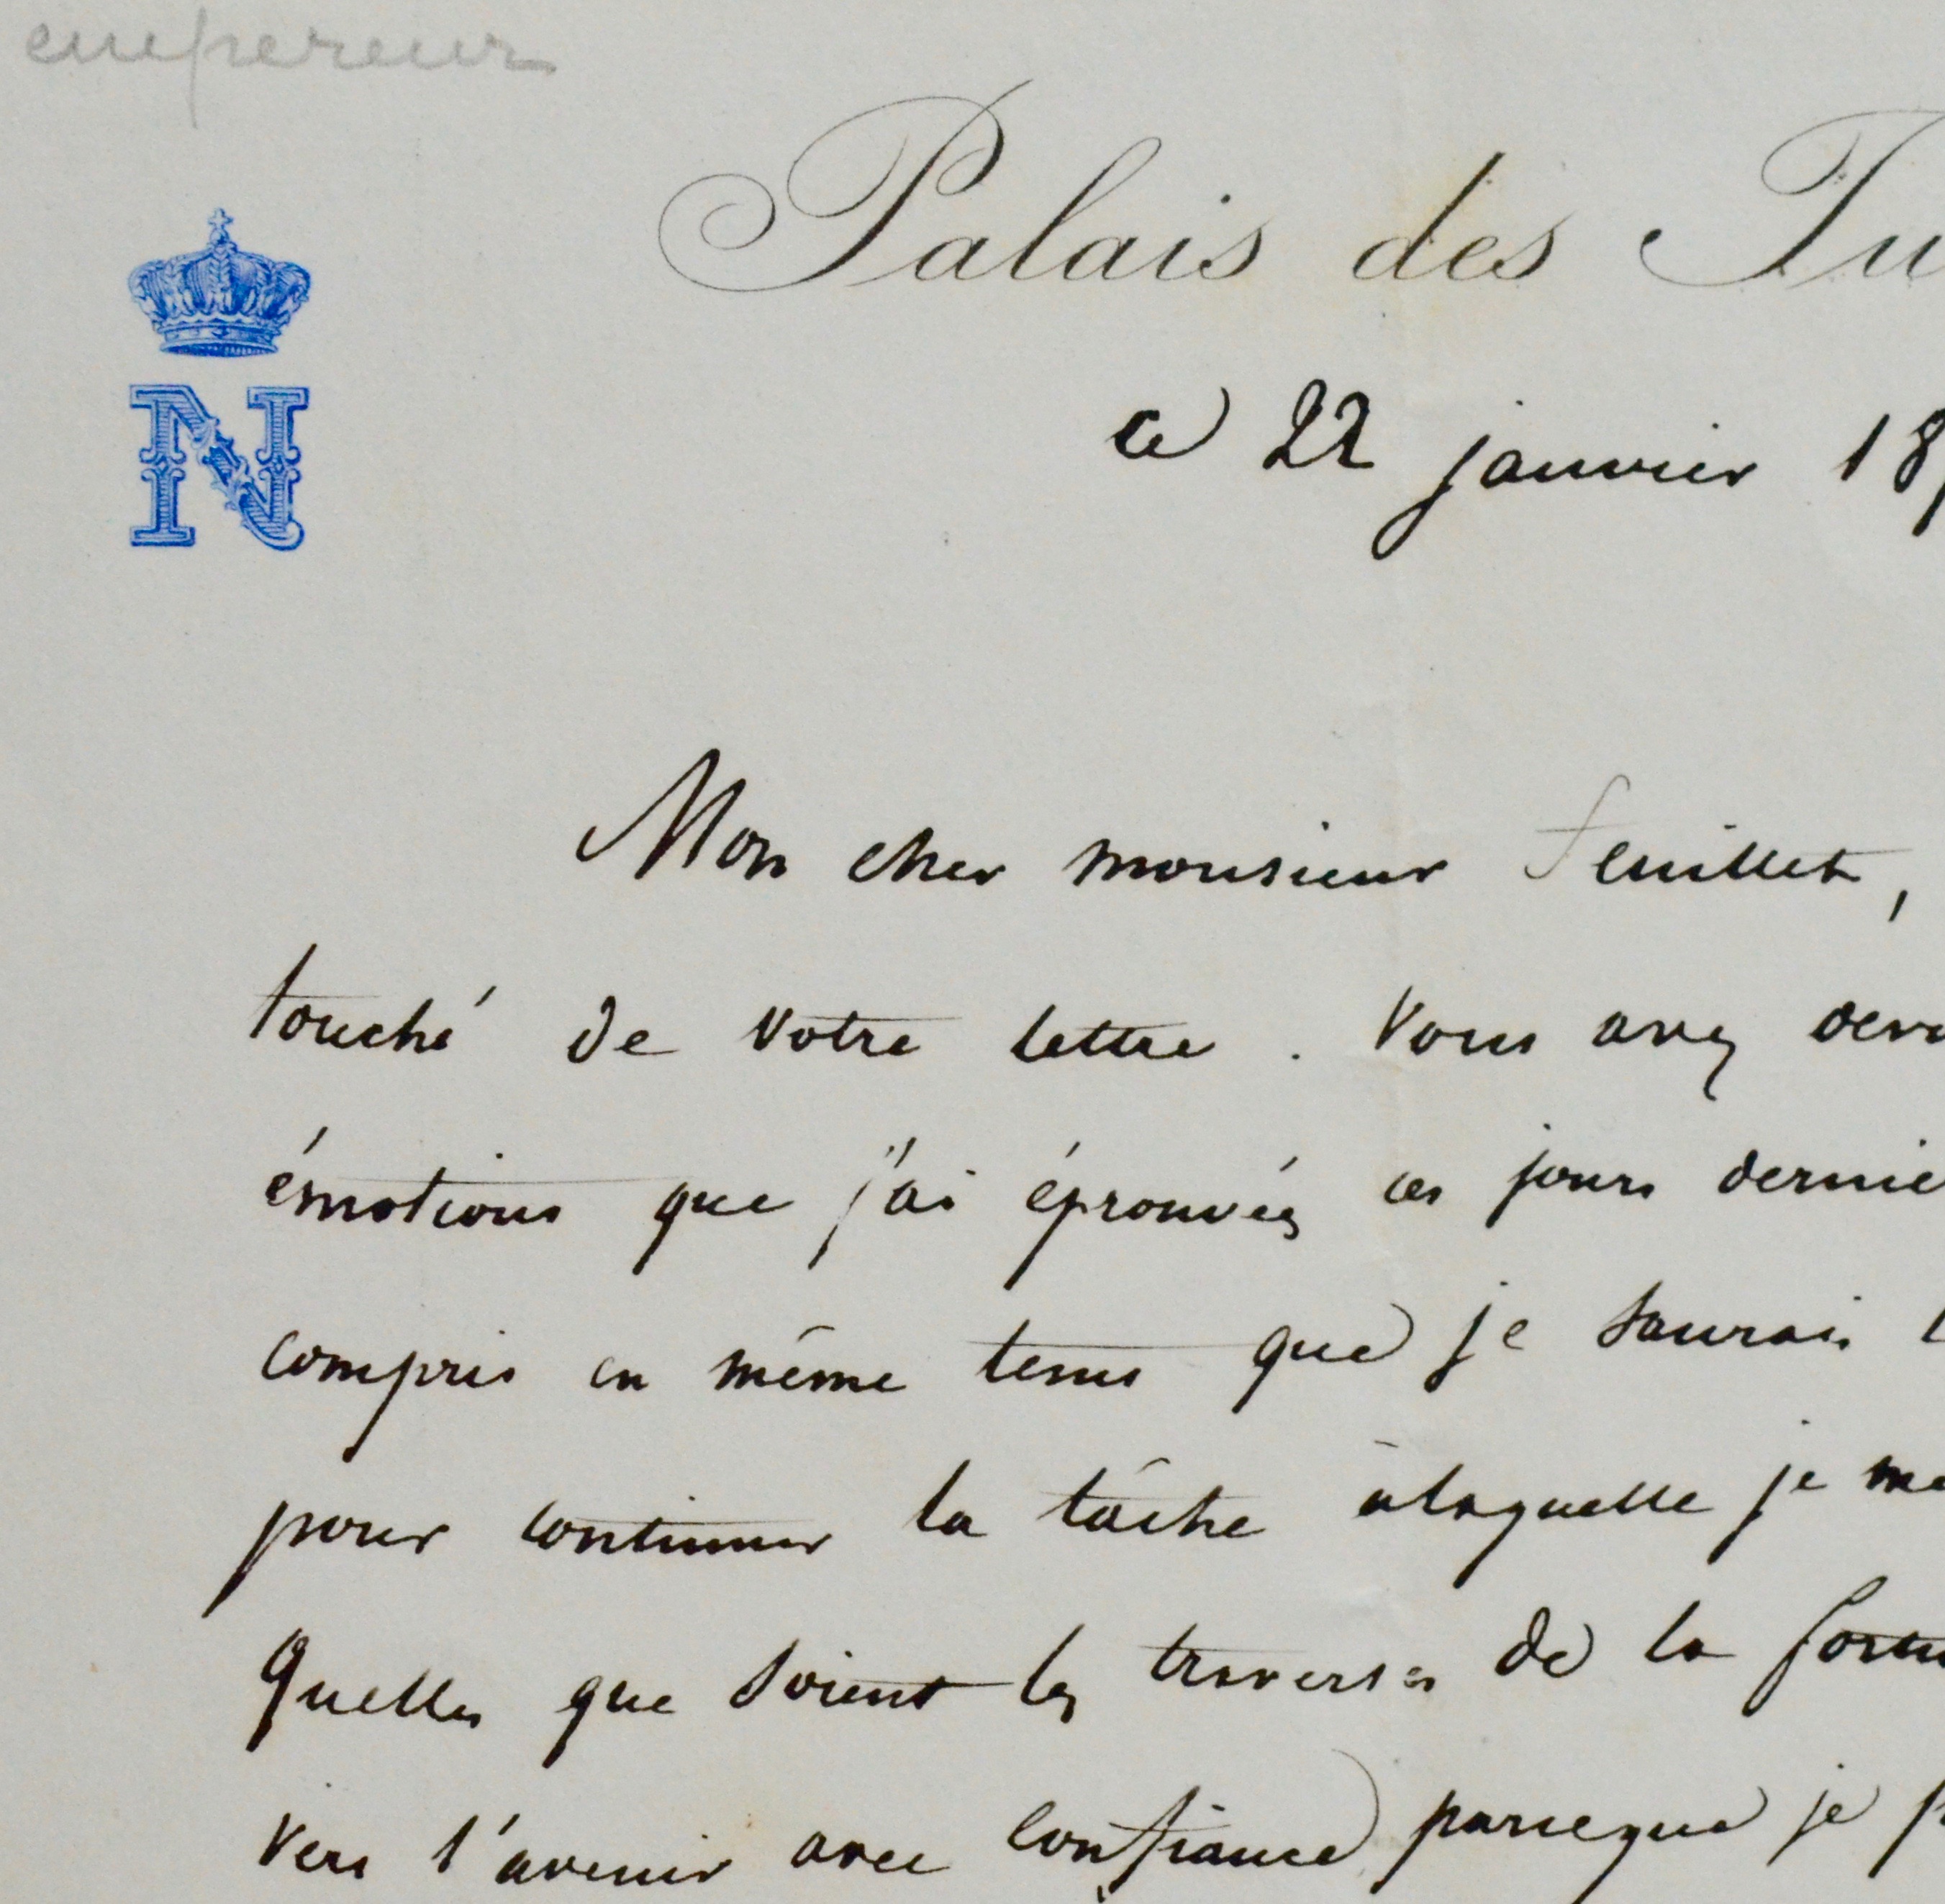 empereur
Palais des Tu
N
ce 22 janvier 18
Mon cher monsieur Feuillet,
touché de votre lettre. Vous avez
émotions que j'ai éprouvées ces jours dernie
compris en même tems que je saurais
pour continuer la tâche à laquelle je me
Quelles que soient les traverses de la fortu
vers l'avenir avec confiance parceque je